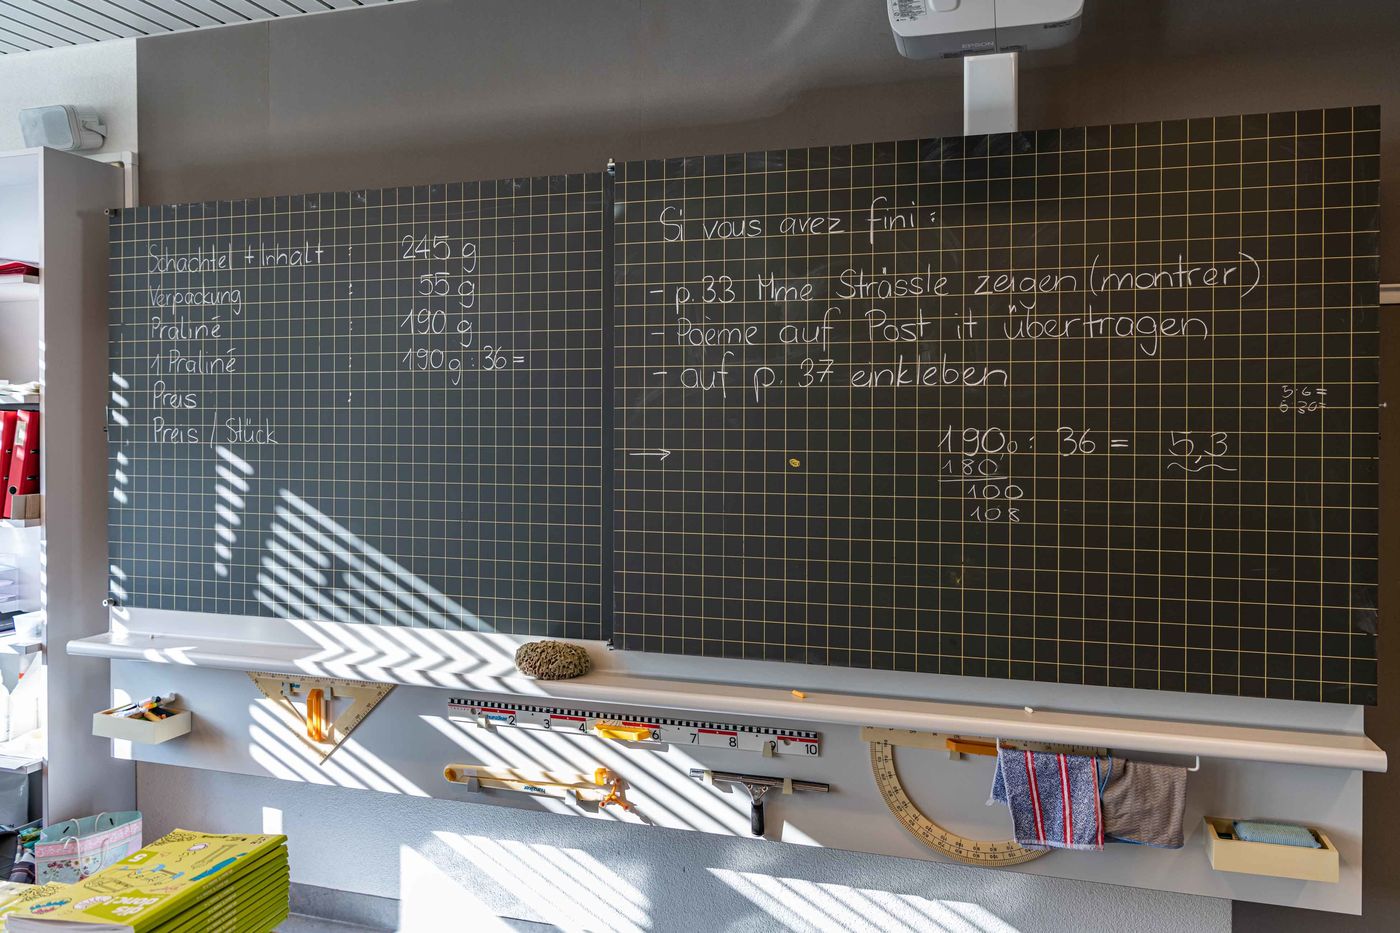 EPSON
Schachtel + Inhalt : 245 g
Verpackung : 55 g
Praliné : 190 g
1 Praliné : 190 g : 36 =
Preis :
Preis / Stück
Si vous avez fini :
- p. 33 Mme Strässle zeigen (montrer)
- Poème auf Post it übertragen
- auf p. 37 einkleben
5·6=
5·30=
→ 190,0 : 36 = 5,3
180
100
108
2 3 4 6 7 8 9 10
dis donc!